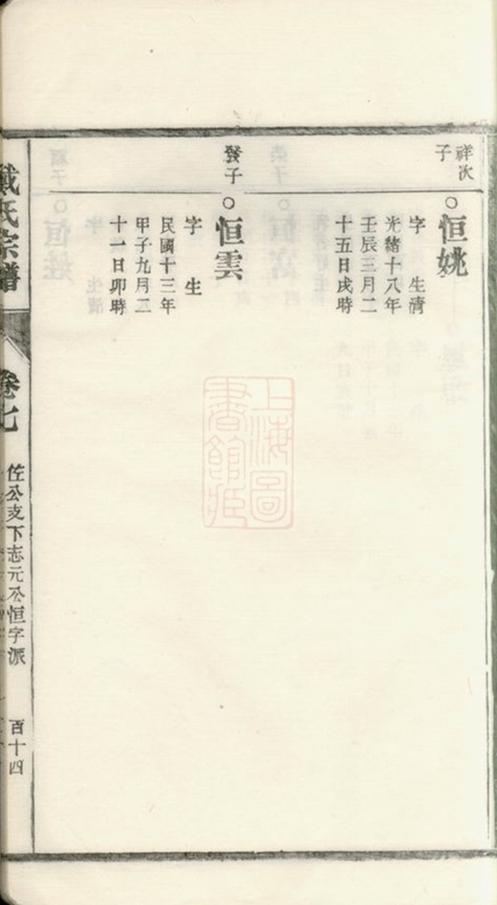 祥次子
○恒姚
字　生清
光緒十八年
壬辰三月二
十五日戌時
發子
○恒雲
字　生
民國十三年
甲子九月二
十一日卯時
戴氏宗譜
卷七
佐公支下志元公恒字派
百十四
上海圖
書館藏